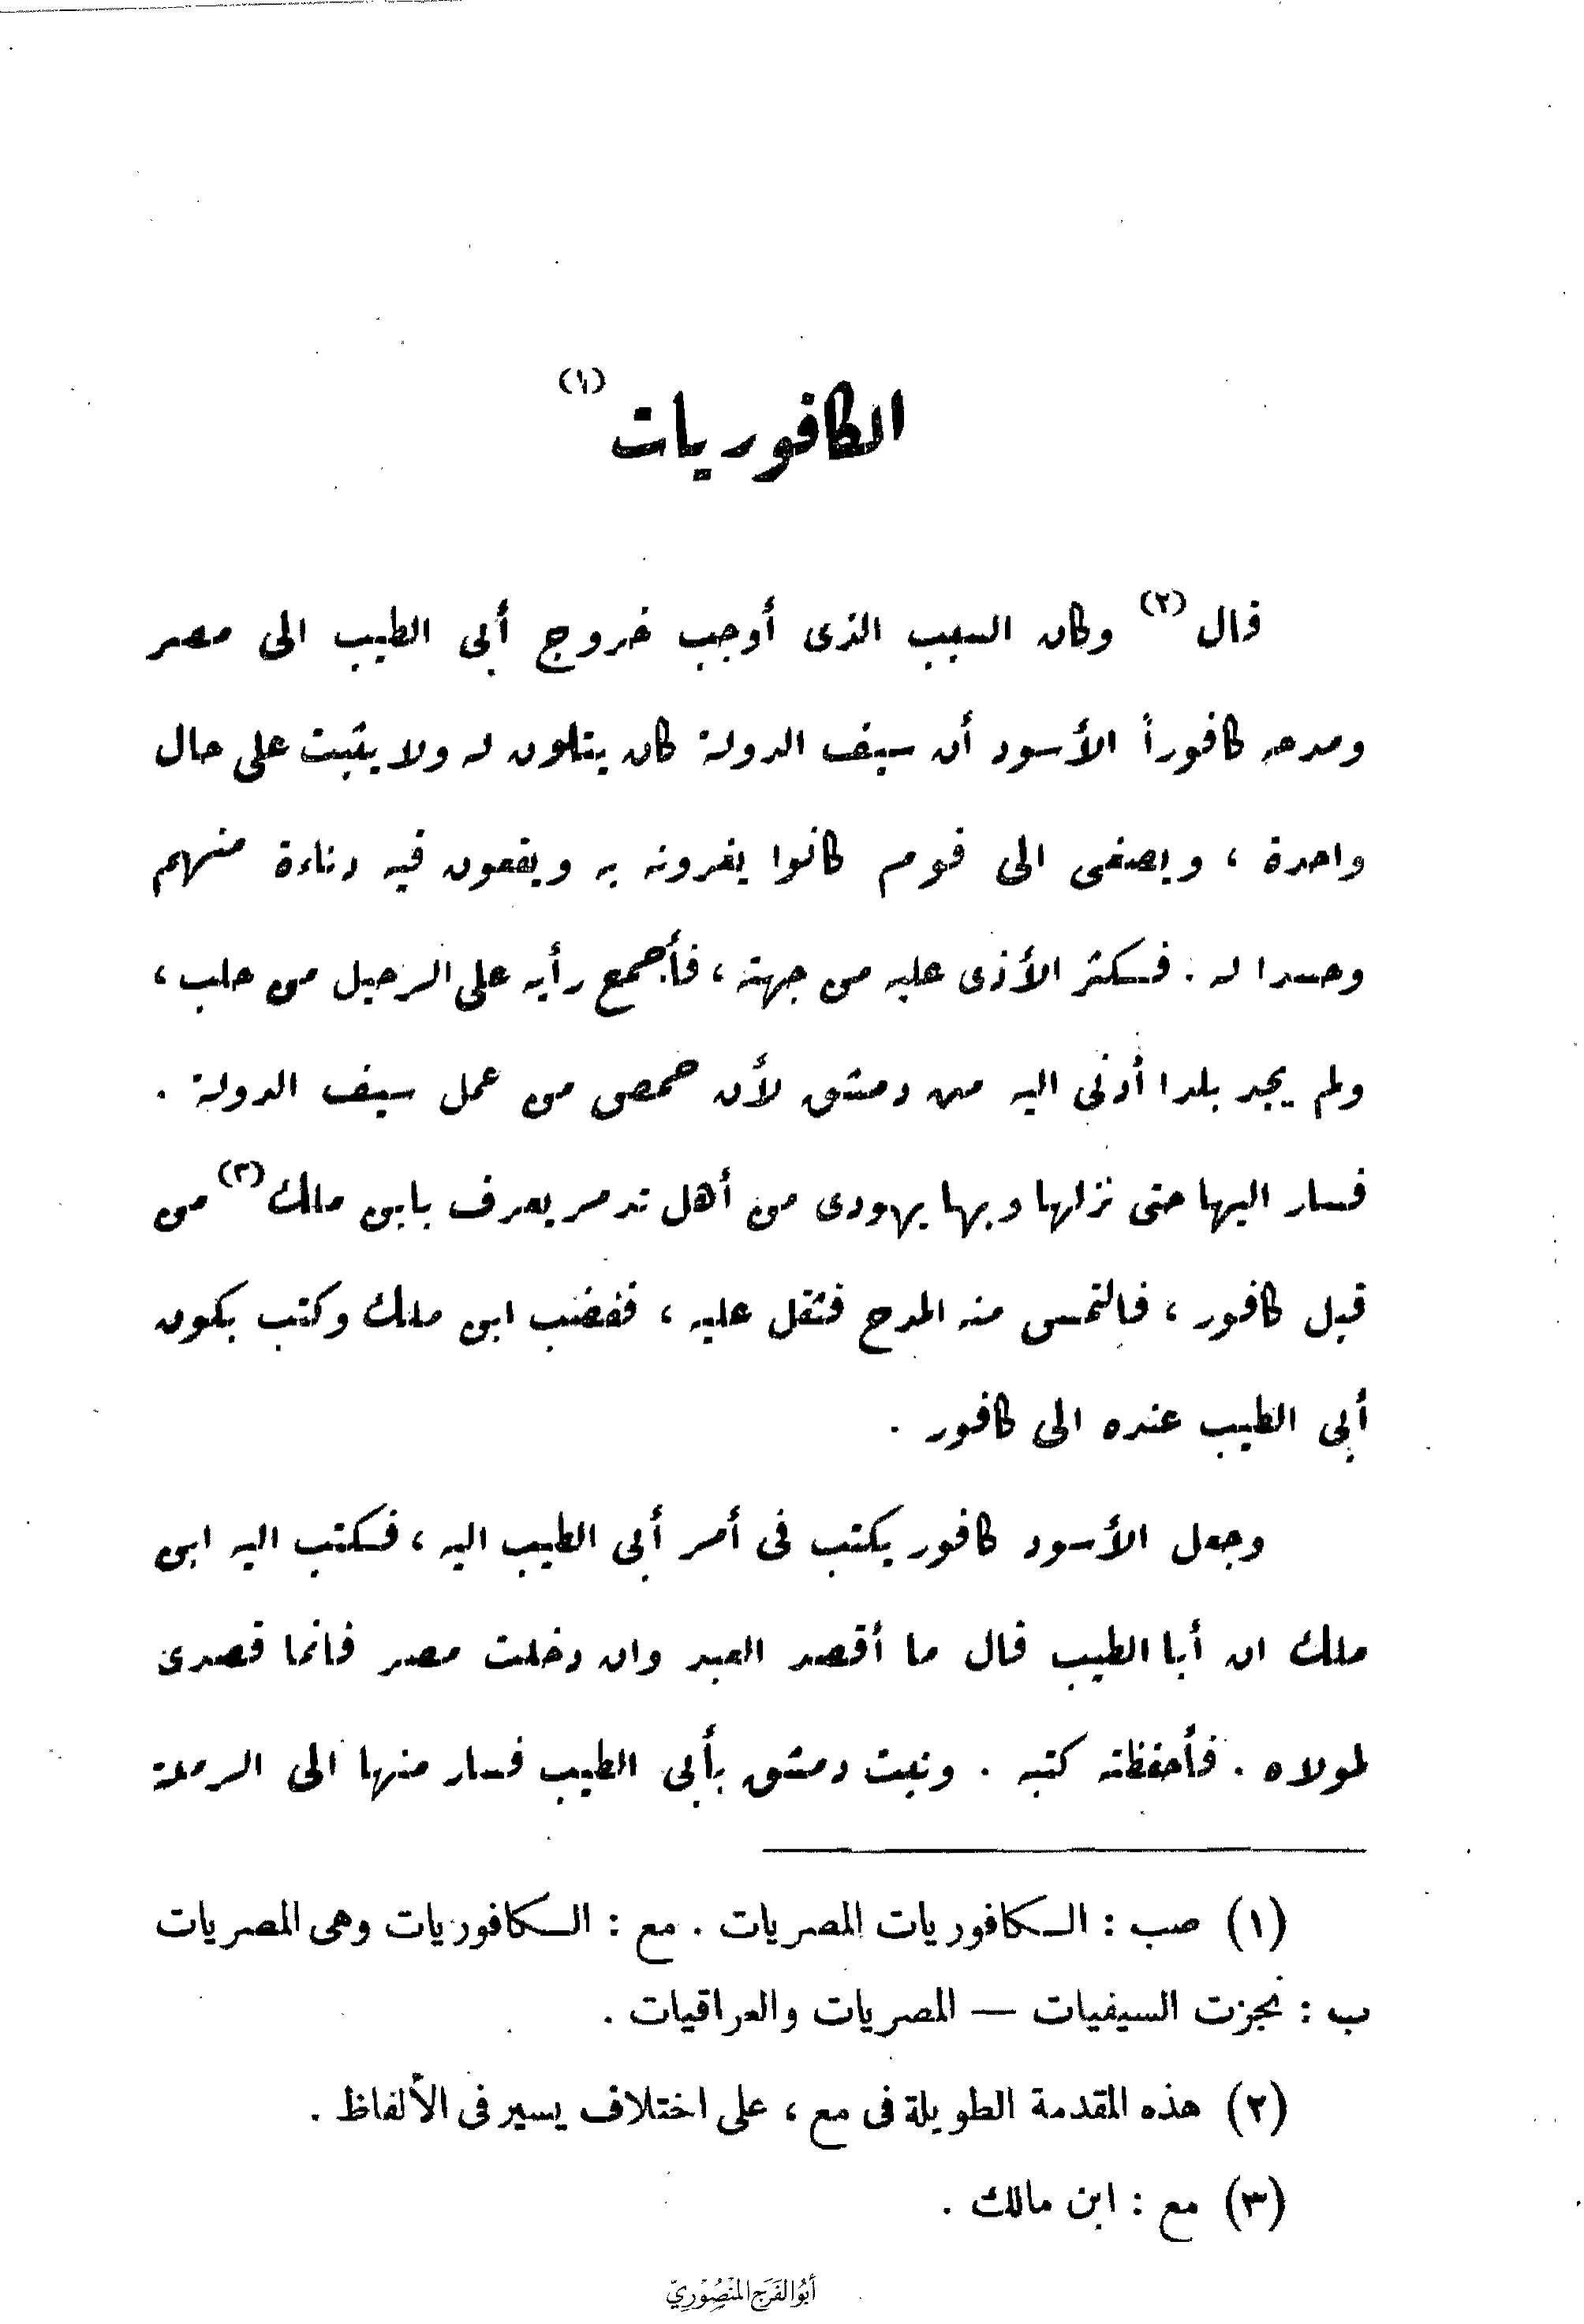 الكافوريات (١)
قال (٢) وكان السبب الذى أوجب خروج أبى الطيب الى مصر
ومدحه كافوراً الأسود أن سيف الدولة كان يتلون له ولا يثبت على حال
واحدة ، ويصغى الى قوم كانوا يغرونه به ويقعون فيه دناءة منهم
وحسدا له . فكثر الأذى عليه من جهته ، فأجمع رأيه على الرحيل من حلب ،
ولم يجد بلدا أدنى اليه من دمشق لأن حمص من عمل سيف الدولة .
فسار اليها حتى نزلها وبها يهودى من أهل تدمر يعرف بابن ملك (٣) من
قبل كافور ، فالتمس منه المدح فثقل عليه ، فغضب ابن ملك وكتب بكون
أبى الطيب عنده الى كافور .
وجعل الأسود كافور يكتب فى أمر أبى الطيب اليه ، فكتب اليه ابن
ملك ان أبا الطيب قال ما أقصد العبد وان دخلت مصر فانما قصدى
لمولاه . فأحفظته كتبه . ونبت دمشق بأبى الطيب فسار منها الى الرملة
(١) صب : الكافوريات المصريات . مع : الكافوريات وهى المصريات
ب : نجزت السيفيات — المصريات والعراقيات .
(٢) هذه المقدمة الطويلة فى مع ، على اختلاف يسير فى الألفاظ .
(٣) مع : ابن مالك .
أبُو الفَرَج المَنْصُوْرِيّ